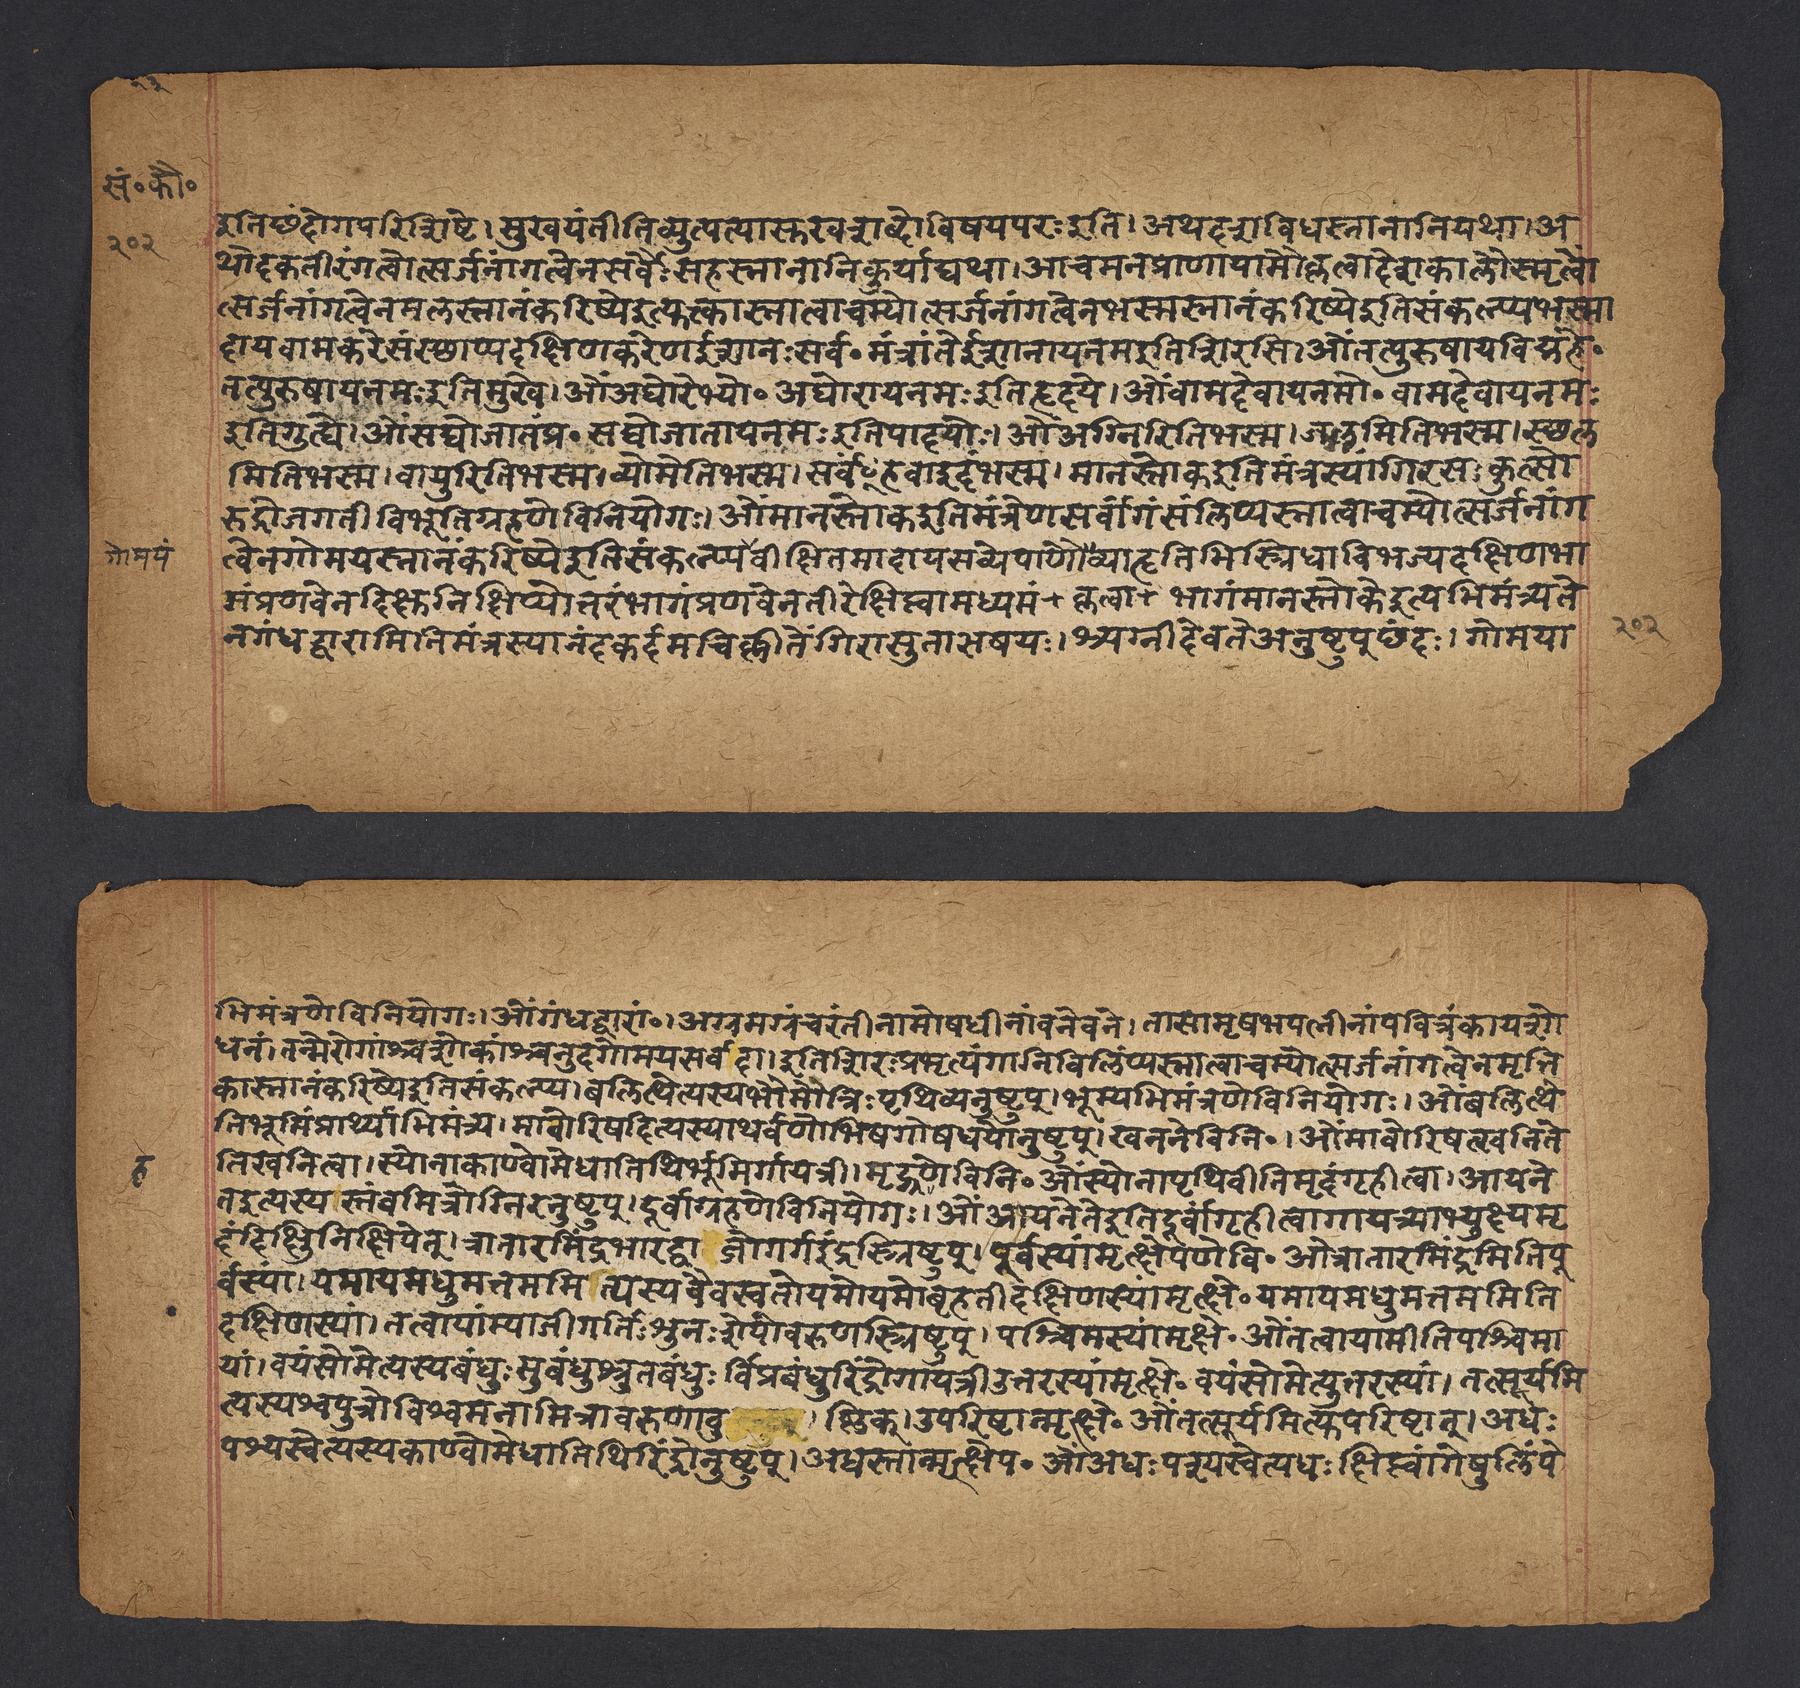 २२
सं॰कौ॰
२०२
इतिछंदोगपरिशिष्टे।सुखयंतीतिव्युत्पत्यास्तखशब्दोविषयपरःइति।अथदशविधस्नानानियथा।अ
थोदकतीरंगत्वोत्सर्जनांगत्वेनसर्वैःसहस्नानानिकुर्याद्यथा।आचमनप्राणायामौकृत्वादेशकालौस्मृत्वो
त्सर्जनांगत्वेनमलस्नानंकरिष्येइत्युक्त्वास्नात्वाचम्योत्सर्जनांगत्वेनभस्मस्नानंकरिष्येइतिसंकल्प्यभस्मा
दायवामकरेसंस्छाप्यदक्षिणकरेणईशानःसर्व॰मंत्रांतेईशानायनमइतिशिरसि।ओंतत्पुरुषायविद्महे॰
तत्पुरुषायनमःइतिमुखे।ओंअघोरेभ्यो॰अघोरायनमःइतिहृदये।ओंवामदेवायनमो॰वामदेवायनमः
इतिगुह्ये।ओंसद्योजातंप्र॰सद्योजातायनमःइतिपादयोः।ओंअग्निरितिभस्म।जलमितिभस्म।स्छल
मितिभस्म।वायुरितिभस्म।व्योमेतिभस्म।सर्वंहवाइदंभस्म।मानस्तोकइतिमंत्रस्यांगिरसःकुत्सो
रुद्रोजगतीविभूतिग्रहणेविनियोगः।ओंमानस्तोकइतिमंत्रेणसर्वांगंसंलिप्यस्नात्वाचम्योत्सर्जनांग
गोमयं
त्वेनगोमयस्नानंकरिष्येइतिसंकल्प्यवीक्षितमादायसव्येपाणौव्याहृतिभिस्त्रिधाविभज्यदक्षिणभा
गंप्रणवेनदिक्षुनिक्षिप्योत्तरंभागंप्रणवेनतीरेक्षिप्त्वामध्यमं+कृत्वा+भागंमानस्तोकेइत्यभिमंत्र्यते
नगंधद्वारामितिमंत्रस्यानंदकर्दमचिक्लीतेंगिरासुताऋषयः।श्र्यग्नीदेवतेअनुष्टुप्छंदः।गोमया
२०२
भिमंत्रणेविनियोगः।ओंगंधद्वारां॰।अग्रमग्रंचरंतीनामोषधीनांवनेवने।तासामृषभपत्नीनांपवित्रंकायशो
धनं।तन्मेरोगांश्चशोकांश्चनुदगोमयसर्वदा।इतिशिरःप्रभृत्यंगानिविलिंप्यस्नात्वाचम्योत्सर्जनांगत्वेनमृत्ति
कास्नानंकरिष्येइतिसंकल्प्य।बलित्थेत्यस्यभौमोत्रिःपृथिव्यनुष्टुप्।भूम्यभिमंत्रणेविनियोगः।ओंबलित्थे
तिभूमिंप्रार्थ्याभिमंत्र्य।मावोरिषदित्यस्याथर्वणोभिषगोषधयोनुष्टुप्।खननेविनि॰।ओंमावोरिषत्खनिते
ह
तिखनित्वा।स्योनाकाण्वोमेधातिथिर्भूमिर्गायत्री।मृद्ग्रहणेविनि॰ओंस्योनापृथिवीतिमृदंगृहीत्वा।आयने
तइत्यस्यस्तंबमित्रोग्निरनुष्टुप्।दूर्वाग्रहणेविनियोगः।ओंआयनेतेइतिदूर्वांगृहीत्वागायत्र्याभ्युक्ष्यमृ
दंदिक्षुनिक्षिपेत्।त्रातारमिंद्रभारद्वाजोगर्गइंद्रस्त्रिष्टुप्।पूर्वस्यांमृत्क्षेपणेवि॰ओंत्रातारमिंद्रमितिपू
र्वस्यां।यमायमधुमत्तममित्यस्यवैवस्वतोयमोयमोबृहतीदक्षिणस्यांमृत्क्षे॰यमायमधुमत्तममिति
दक्षिणस्यां।तत्वायांम्याजीगर्तिःशुनःशेपोवरुणस्त्रिष्टुप्।पश्चिमस्यांमृत्क्षे॰ओंतत्वायामीतिपश्चिमा
यां।वयंसोमेत्यस्यबंधुःसुबंधुश्रुतबंधुःर्विप्रबंधुरिंद्रोगायत्रीउत्तरस्यांमृत्क्षे॰वयंसोमेत्युत्तरस्यां।तत्सूर्यमि
त्यस्यश्वपुत्रोविश्वमनामित्रावरुणावु ष्णिक्।उपरिष्टान्मृत्क्षे॰ओंतत्सूर्यमित्युपरिष्टात्।अधः
पश्यस्वेत्यस्यकाण्वोमेधातिथिरिंद्रोनुष्टुप्।अधस्तान्मृत्क्षेप॰ओंअधःपश्यस्वेत्यधःक्षिप्त्वांगेषुलिंपे